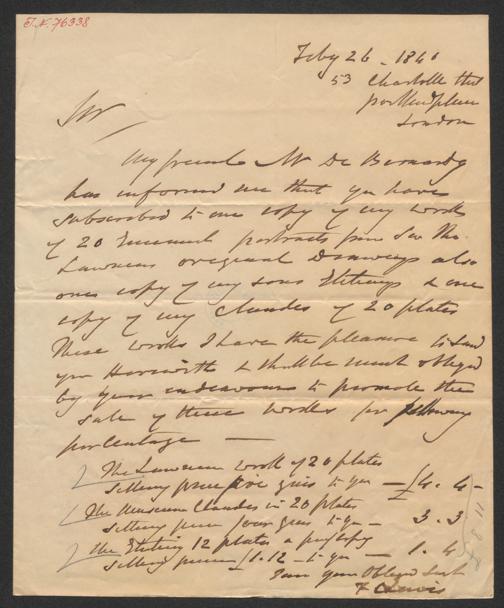 T.N. 76338
Feby 26 - 1840
53 Charlotte Street
portland place
London
Sir
My friend Mr De Bernardy
has informed me that you have
subscribed to one copy of my work
of 20 Eminent portraits from Sir Tho.
Lawrences original Drawings also
one copy of my sons Etchings & one
copy of my Claudes of 20 plates
These works I have the pleasure to send
you Herewith & shall be much obliged
by your endeavours to promote the
sale of these works for following
percentage —
The Lawrence work of 20 plates
selling price five guis to you — £4. 4 -
The Museum Claudes in 20 plates
selling price four guis to you — 3. 3
the Etching 12 plates a
selling price £1.12 - to you — 1. 4
I am your Obliged Sert
F C Lewis